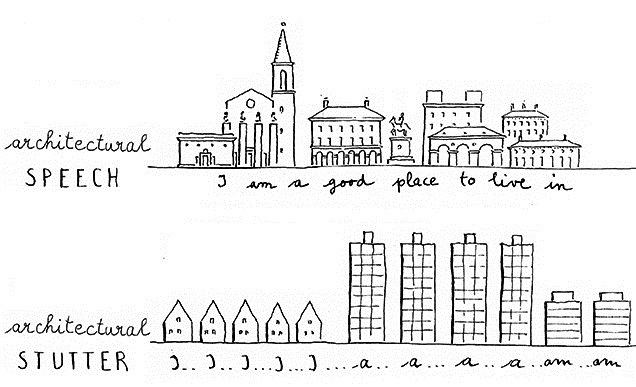 architectural
SPEECH
I am a good place to live in
architectural
STUTTER
I.. I.. I... I... I .... a ... a ... a ... a ... am ... am